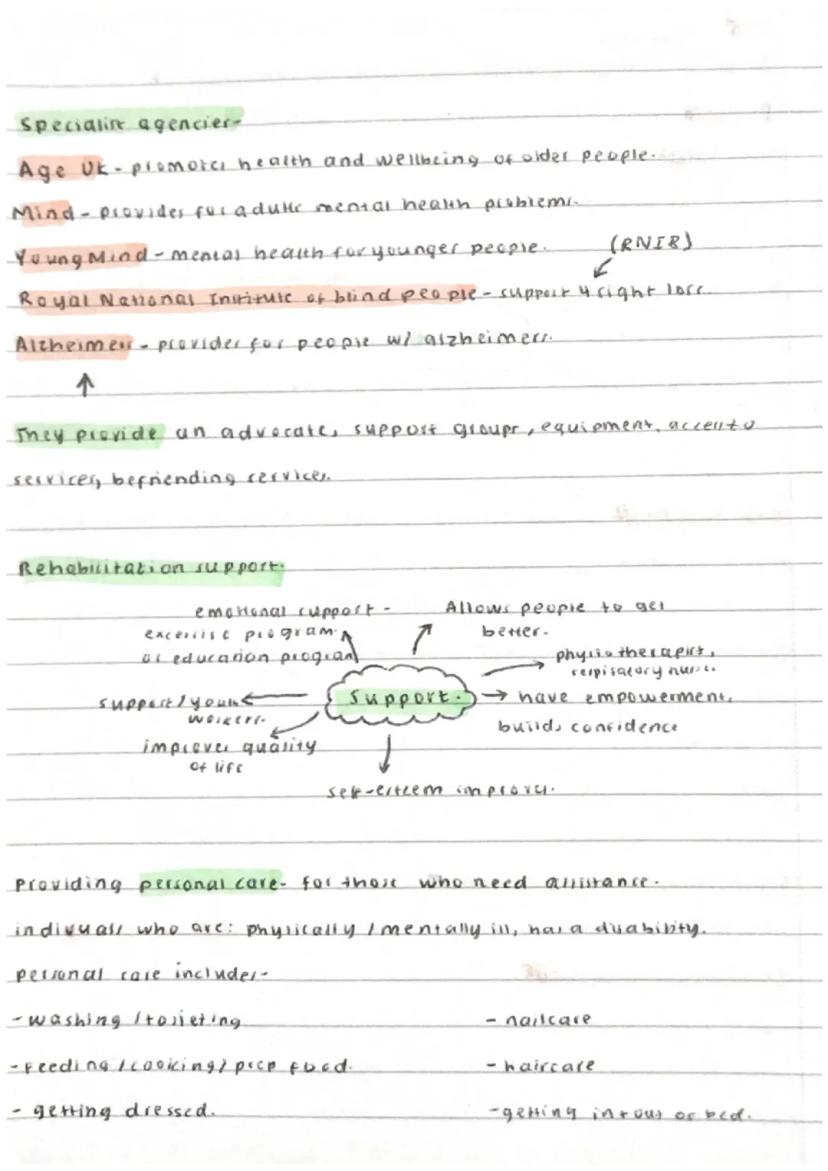 Specialist agencies-
Age UK - promotes health and wellbeing of older people.
Mind - provides for adults mental health problems.
Young Mind - mental health for younger people. (RNIB)
Royal National Institute of blind people - support 4 sight loss.
Alzheimers - provides for people w/ alzheimers.
They provide an advocate, support groups, equipment, access to
services, befriending services.
Rehabilitation support.
emotional support -
excersise program
or education program
Allows people to get
better.
physiotherapist,
respisatory nurse.
support/youth
workers.
Support.
have empowerment,
builds confidence
improves quality
of life
self-esteem improves.
Providing personal care- for those who need assistance.
indivuals who are: physically / mentally ill, has a disability.
personal care includes-
- washing / toileting
- nailcare
- feeding / cooking / prep food.
- haircare
- getting dressed.
- getting in + out of bed.